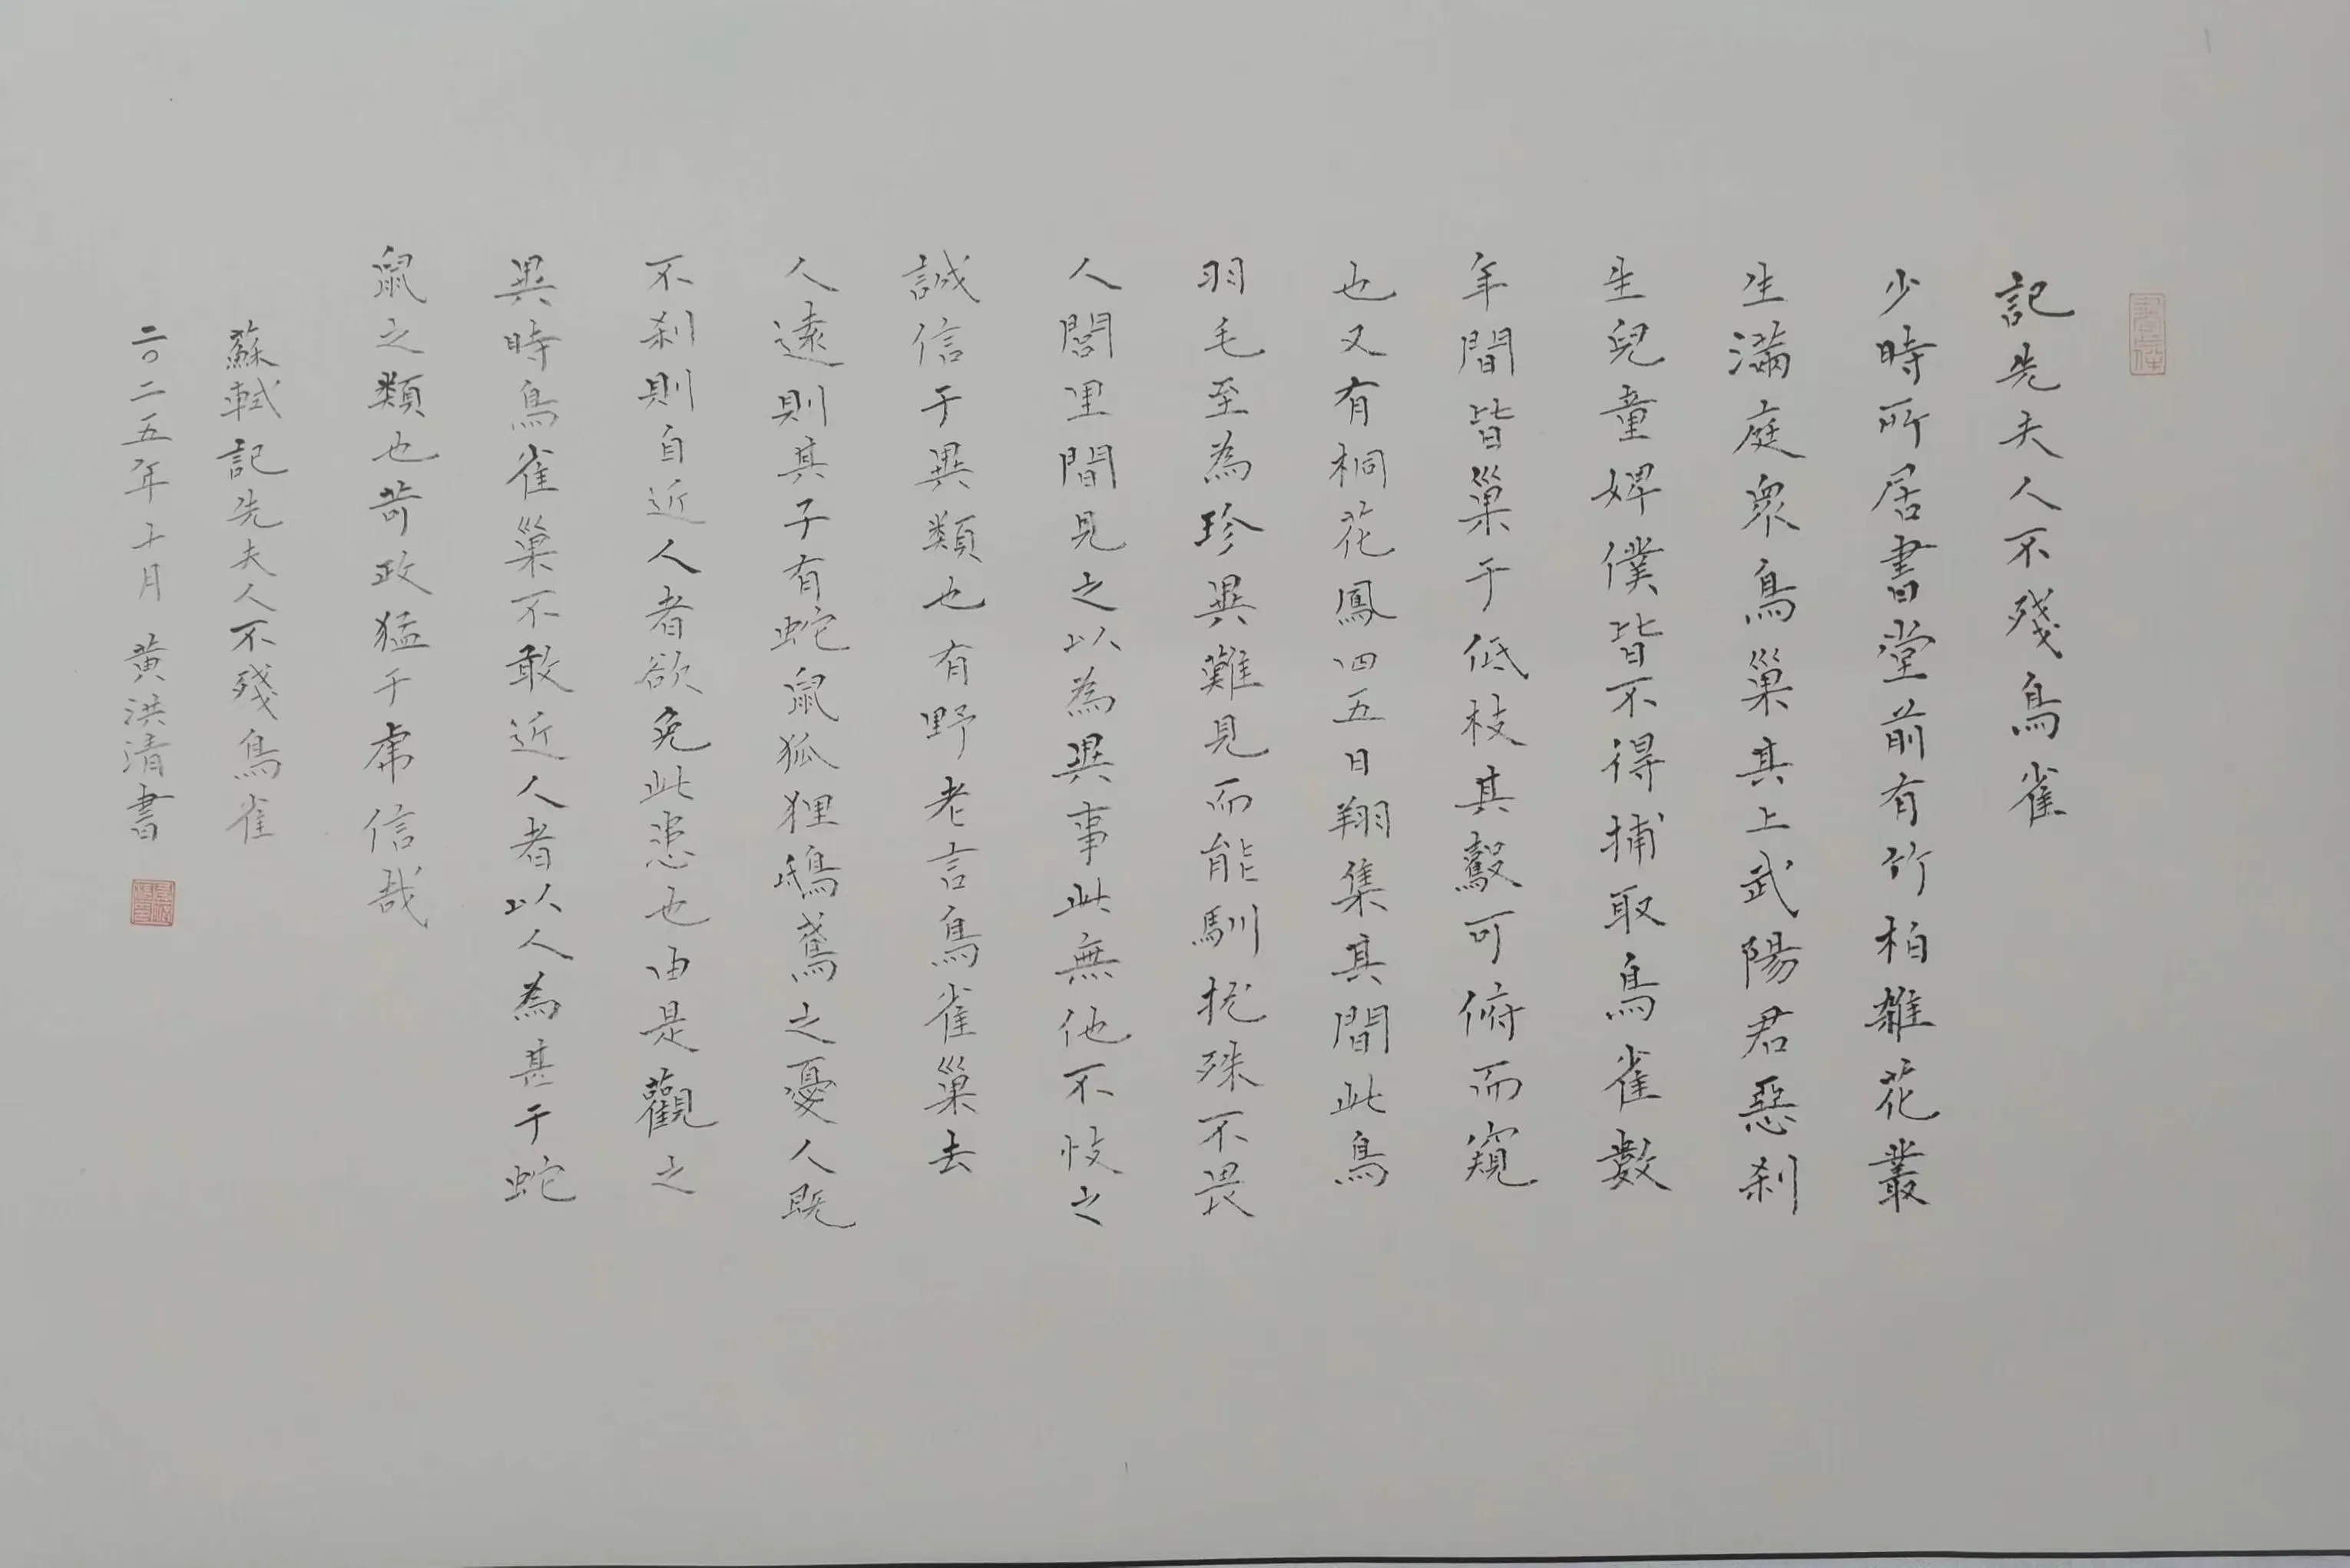 記先夫人不殘鳥雀
少時所居書堂前有竹柏雜花叢
生滿庭衆鳥巢其上武陽君惡刹
生兒童婢僕皆不得捕取鳥雀數
年間皆巢于低枝其鷇可俯而窺
也又有桐花鳳四五日翔集其間此鳥
羽毛至為珍異難見而能馴扰殊不畏
人閭里間見之以為異事此無他不忮之
誠信于異類也有野老言鳥雀巢去
人遠則其子有蛇鼠狐狸鴟鳶之憂人既
不刹則自近人者欲免此患也由是觀之
異時鳥雀巢不敢近人者以人為甚于蛇
鼠之類也苛政猛于虎信哉
蘇軾記先夫人不殘鳥雀
二〇二五年十月 黃洪清書